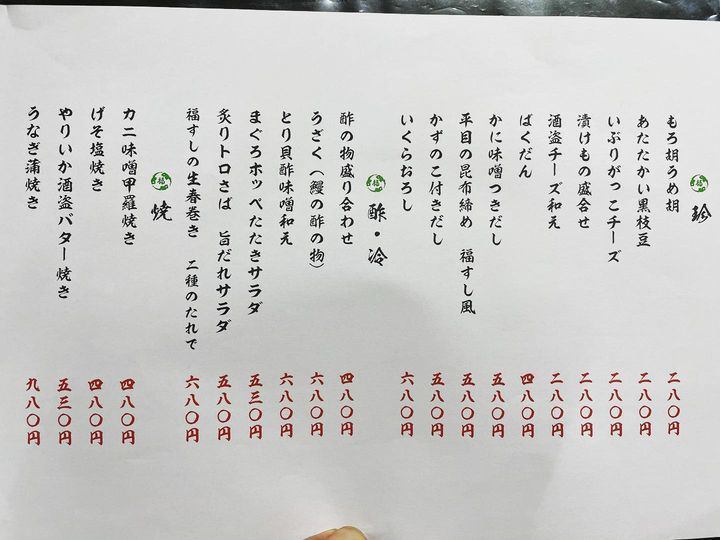 珍
もろ胡うめ胡 二八〇円
あたたかい黒枝豆 二八〇円
いぶりがっこチーズ 二八〇円
漬けもの盛合せ 二八〇円
酒盗チーズ和え 二八〇円
ばくだん 四八〇円
かに味噌つきだし 五八〇円
平目の昆布締め 福すし風 五八〇円
かずのこ付きだし 五八〇円
いくらおろし 六八〇円
酢・冷
酢の物盛り合わせ 四八〇円
うざく(鰻の酢の物) 六八〇円
とり貝酢味噌和え 六八〇円
まぐろホッペたたきサラダ 五三〇円
炙りトロさば 旨だれサラダ 五八〇円
福すしの生春巻き 二種のたれで 六八〇円
焼
カニ味噌甲羅焼き 四八〇円
げそ塩焼き 四八〇円
やりいか酒盗バター焼き 五三〇円
うなぎ蒲焼き 九八〇円